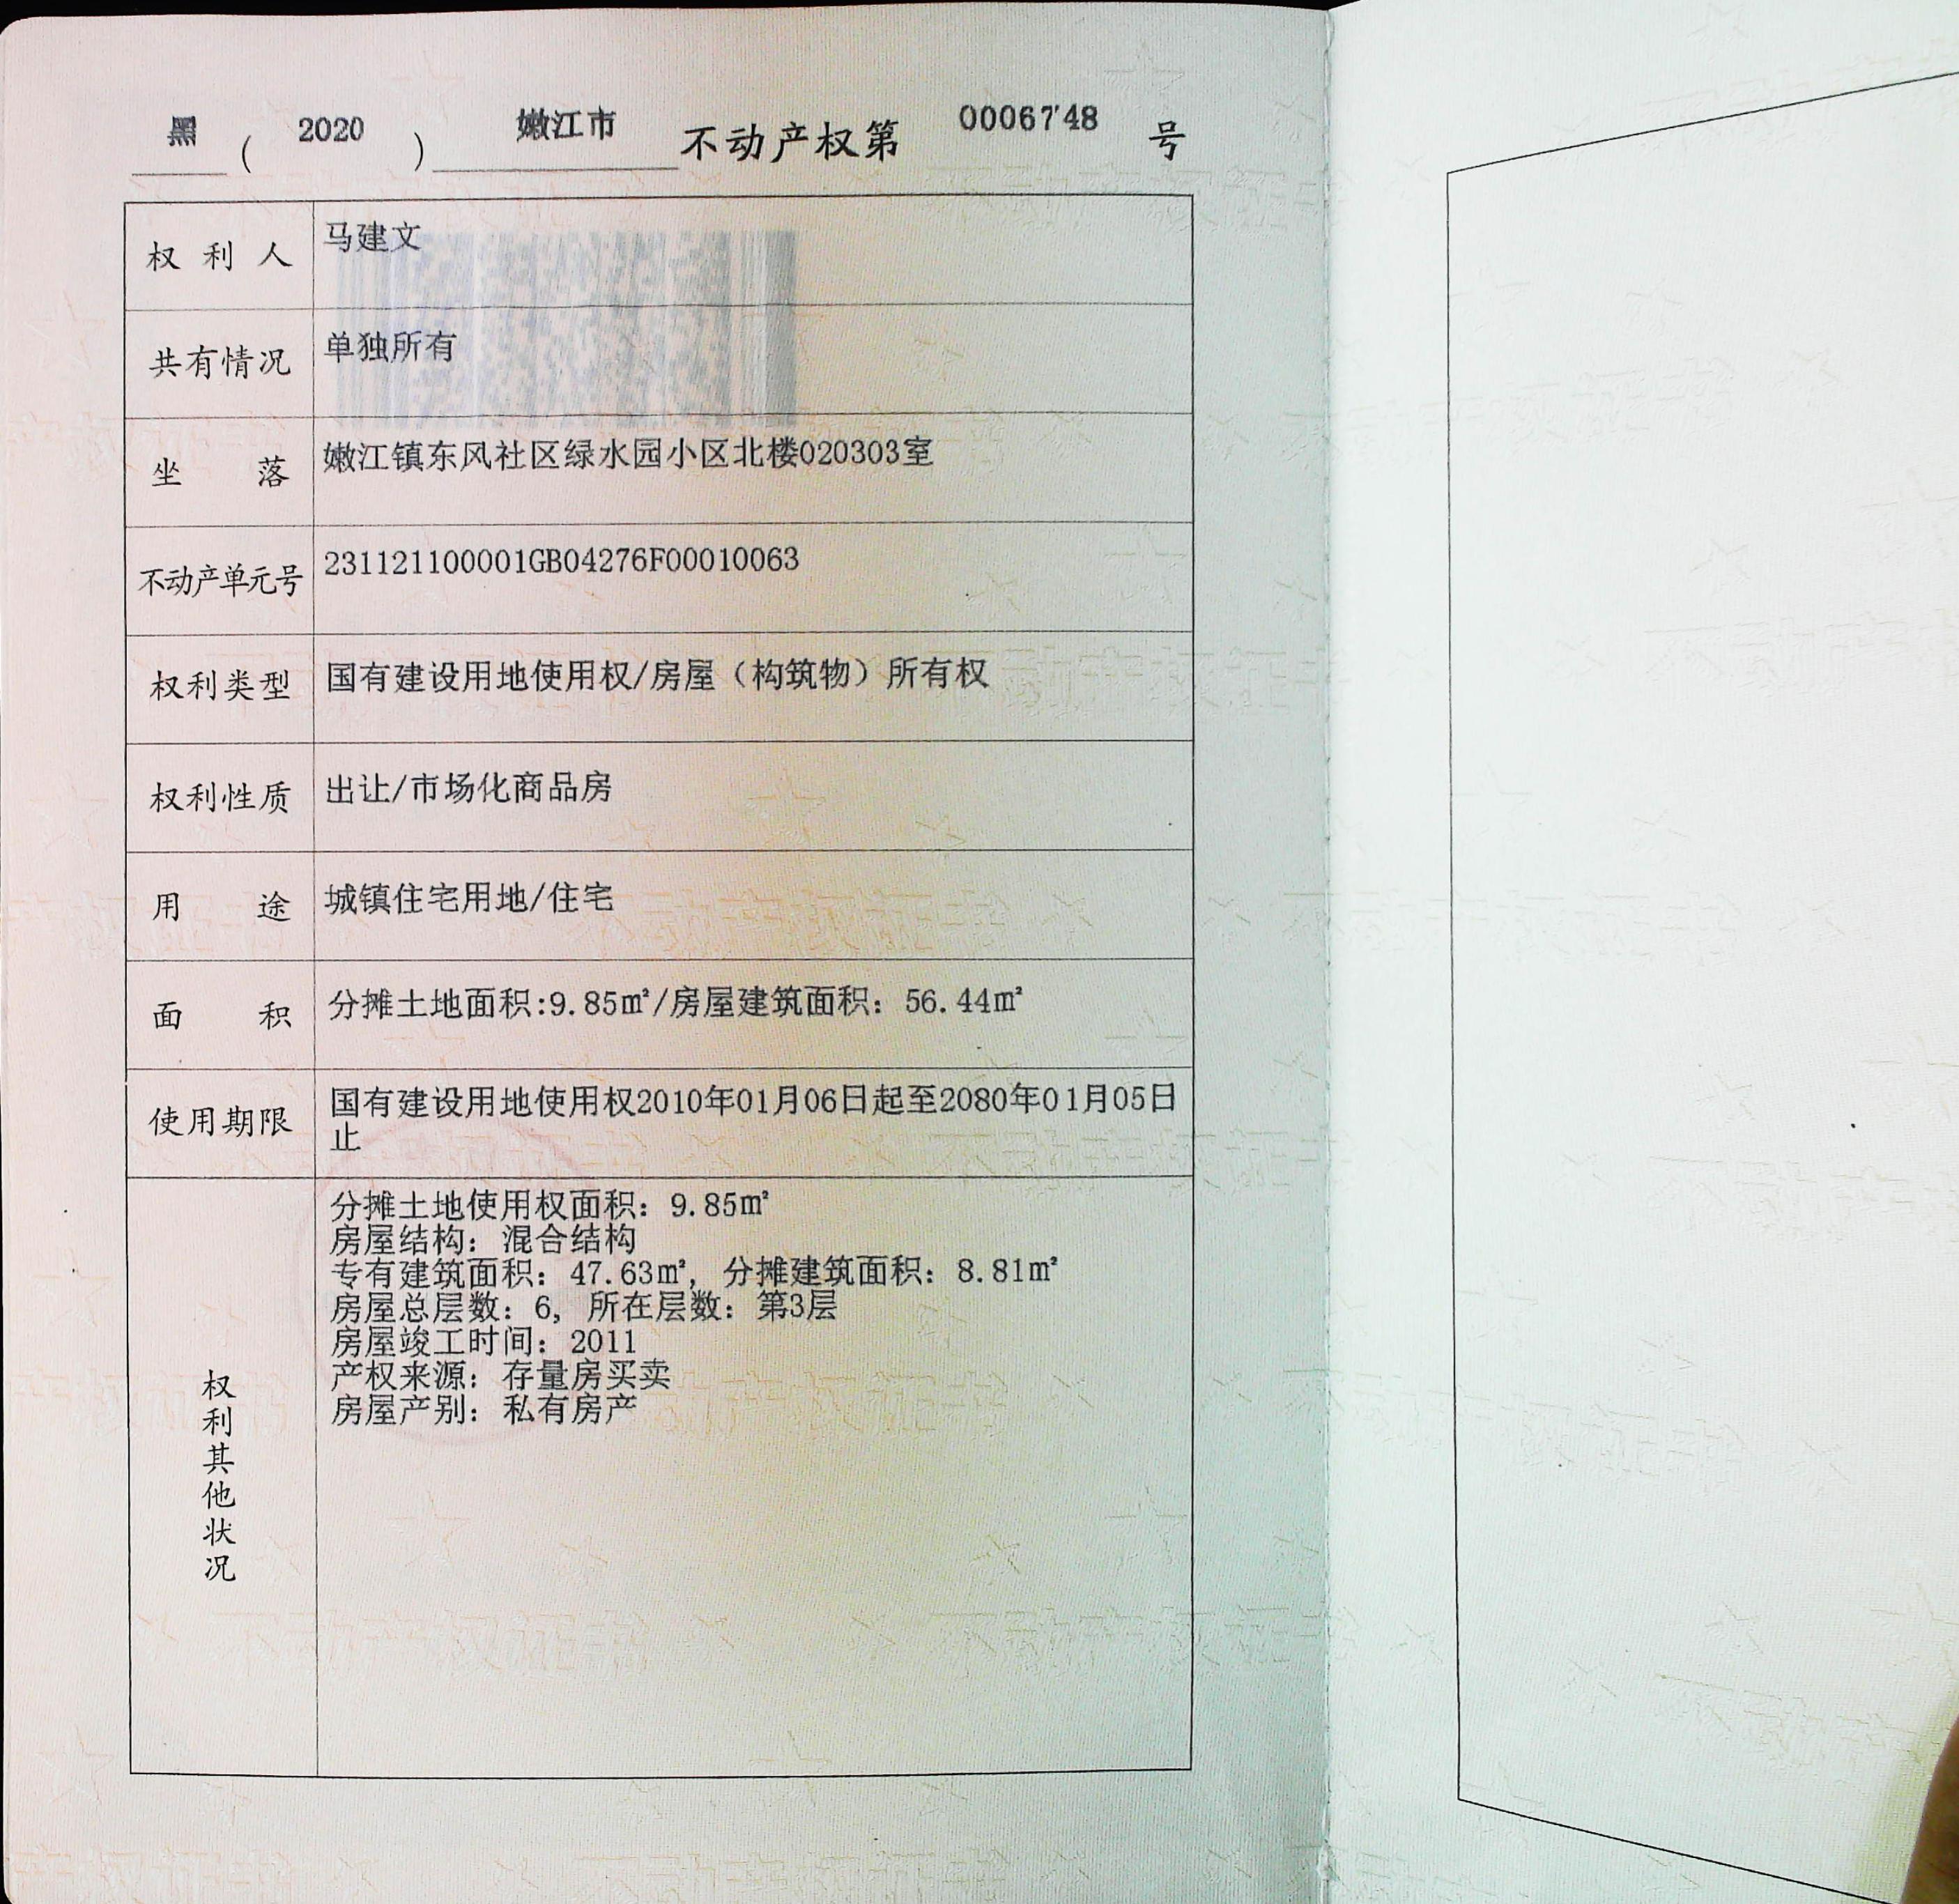 黑（2020）嫩江市不动产权第0006748号
权利人 马建文
共有情况 单独所有
坐落 嫩江镇东风社区绿水园小区北楼020303室
不动产单元号 231121100001GB04276F00010063
权利类型 国有建设用地使用权/房屋（构筑物）所有权
权利性质 出让/市场化商品房
用途 城镇住宅用地/住宅
面积 分摊土地面积:9.85㎡/房屋建筑面积：56.44㎡
使用期限 国有建设用地使用权2010年01月06日起至2080年01月05日
止
权利其他状况
分摊土地使用权面积：9.85㎡
房屋结构：混合结构
专有建筑面积：47.63㎡，分摊建筑面积：8.81㎡
房屋总层数：6，所在层数：第3层
房屋竣工时间：2011
产权来源：存量房买卖
房屋产别：私有房产